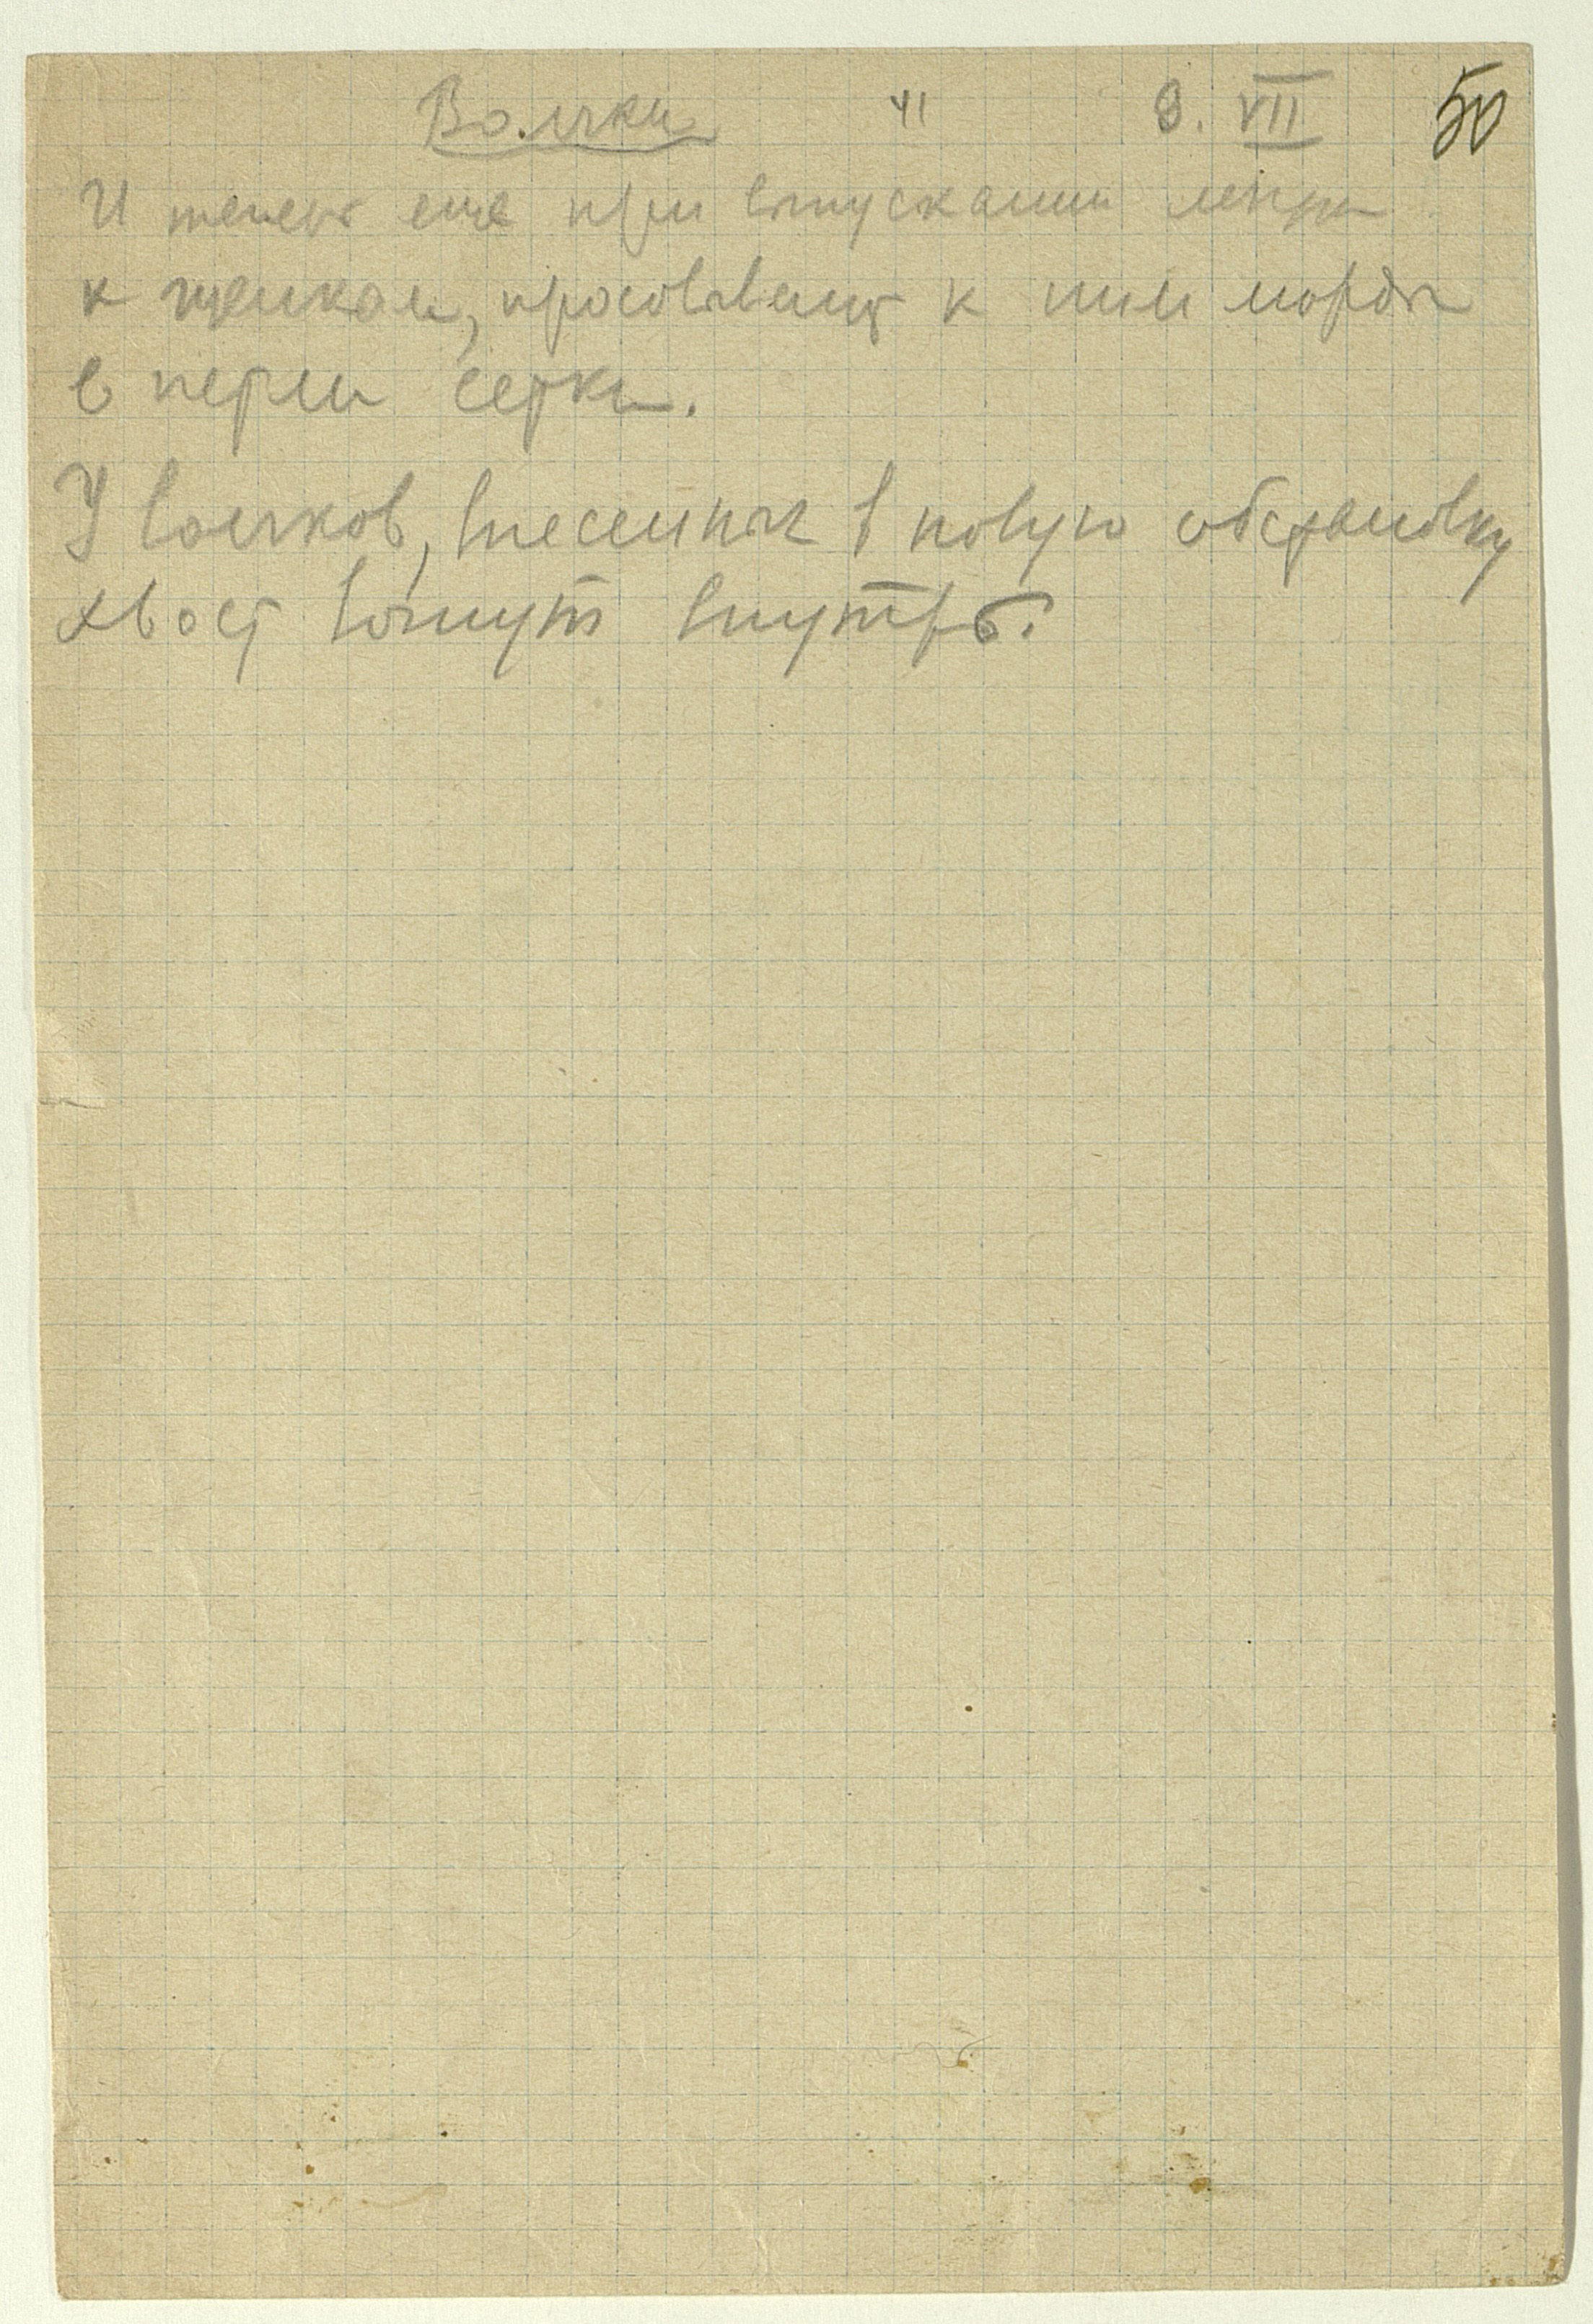 Волчки 41 9. VII 50
И теперь еще при выпускании
к щенкам, просовывают к ним морды
в петли сетки.
У волчков, внесенных в новую обстановку
хвост вогнут внутрь.